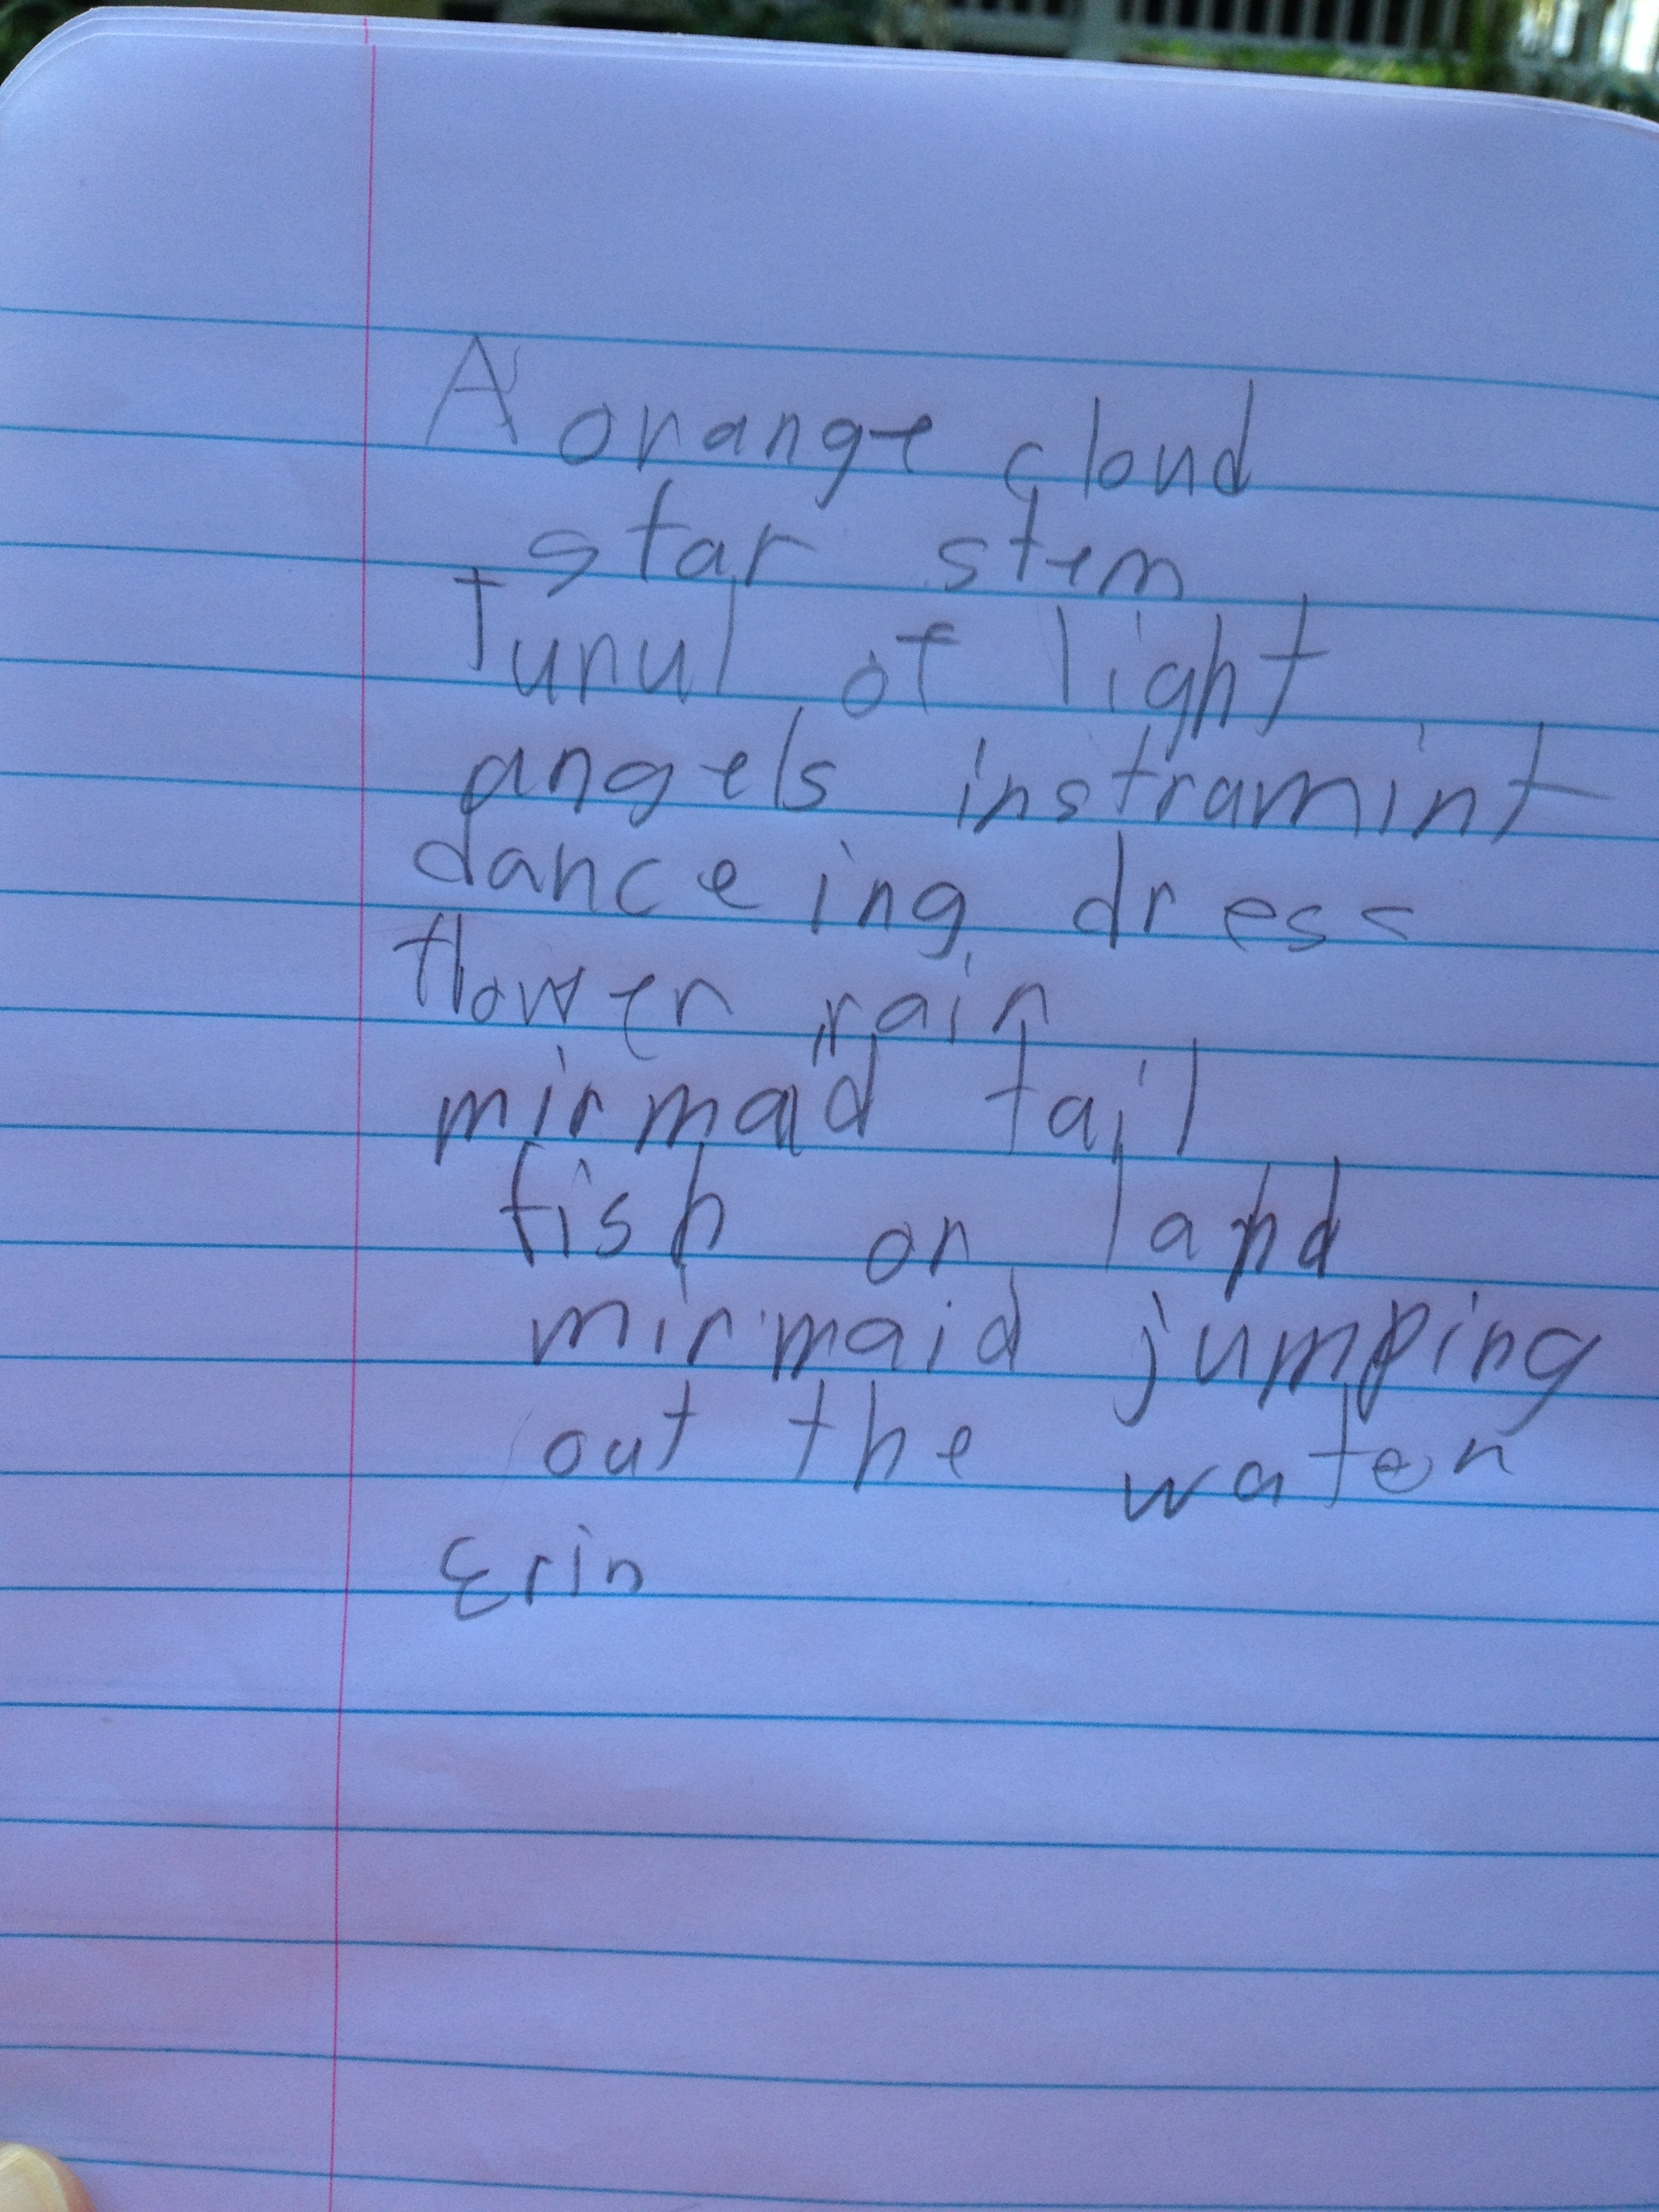 A orange cloud
star stem
Tunul of light
angels instramint
danceing dress
flower rain
mirmaid tail
fish on land
mirmaid jumping
out the water
Erin